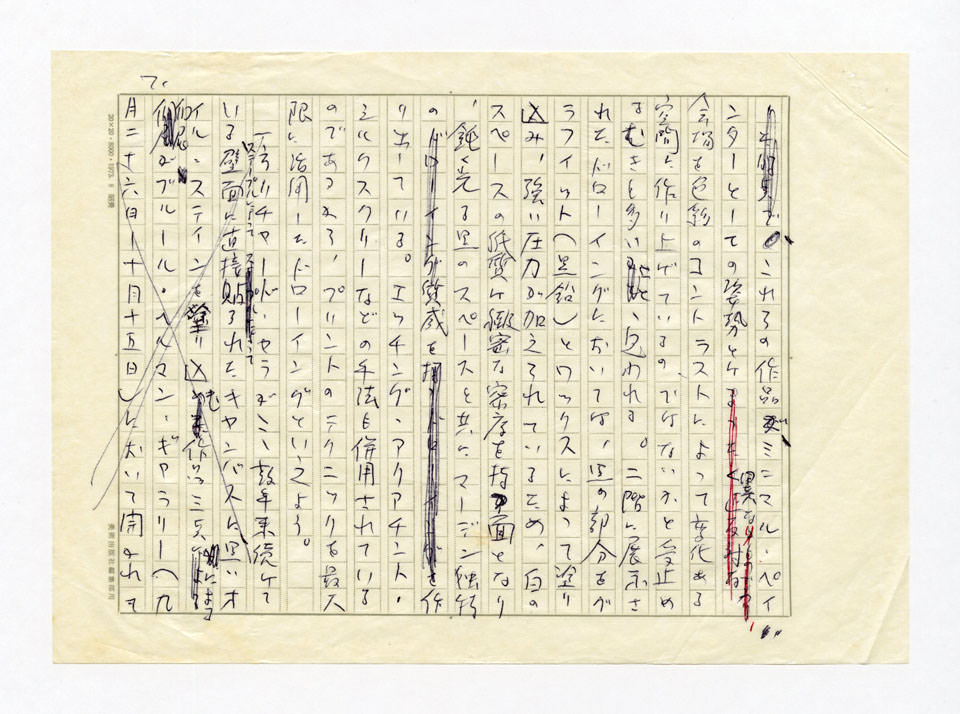 これらの作品がミニマル・ペイ
ンターとしての姿勢とは異なり
会場を色彩のコントラストによって変化ある
空間に作り上げているのではないかと受止め
るむきも多いと思われる。二階に展示さ
れたドローイングにおいては、黒の部分をグ
ラファイト(黒鉛)とワックスによって塗り
込み、強い圧力が加えられているため、白の
スペースの紙質は緻密な密度を持つ面となり
、鈍く光る黒のスペースと共にマーデン独特
の質感を作
り出ている。エッチング・アクアチント・
シルクスクリーンなどの手法も併用されている
のであるから、プリントのテクニックを最大
限に活用したドローイングといえよう。
一方リチャード・セラがここ数年来続けて
いる壁面に直接貼られたキャンバスに黒いオ
イル・スティックを塗り込めた作品三点による
個展がブルール・ヘルマン・ギャラリー(九
月二十六日ー十月十五日)において開かれて
7.
20×20・8000・1973.
美術出版社編集部用